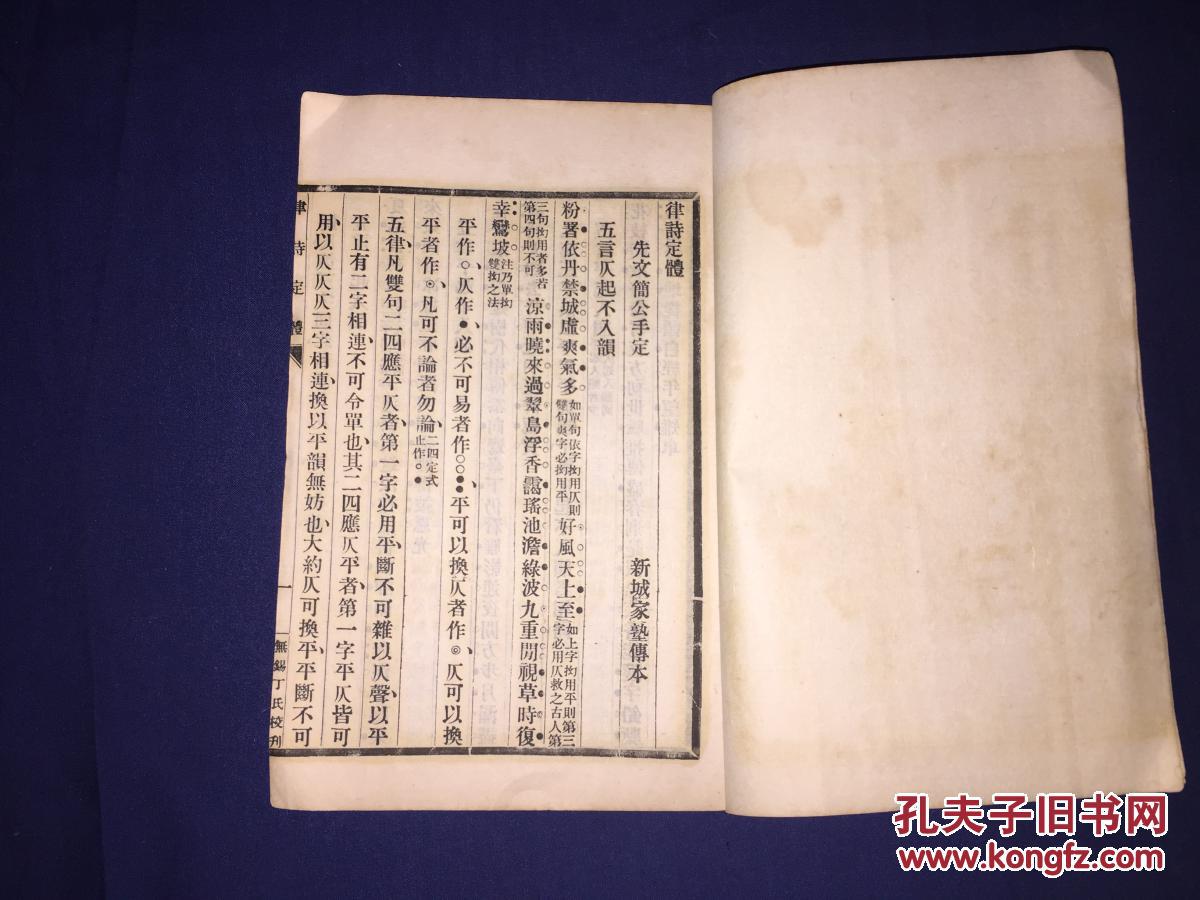 律詩定體
先文簡公手定　新城家塾傳本
五言仄起不入韻
粉署依丹禁城虛爽氣多如單句依字拗用仄則雙句爽字必拗用平好風天上至如上字拗用平則第三字必用仄救之古人第
三句拗用者多若第四句則不可涼雨曉來過翠島浮香靄瑤池澹綠波九重閒視草時復
幸鸞坡注乃單拗雙拗之法
平作○仄作●必不可易者作○○●●平可以換仄者作◎仄可以換
平者作⊙凡可不論者勿論二四定式止作○●
五律凡雙句二四應平仄者第一字必用平斷不可雜以仄聲以平
平止有二字相連不可令單也其二四應仄平者第一字平仄皆可
用以仄仄仄三字相連換以平韻無妨也大約仄可換平平斷不可
律詩定體
一
無錫丁氏校刊
孔夫子旧书网
www.kongfz.com